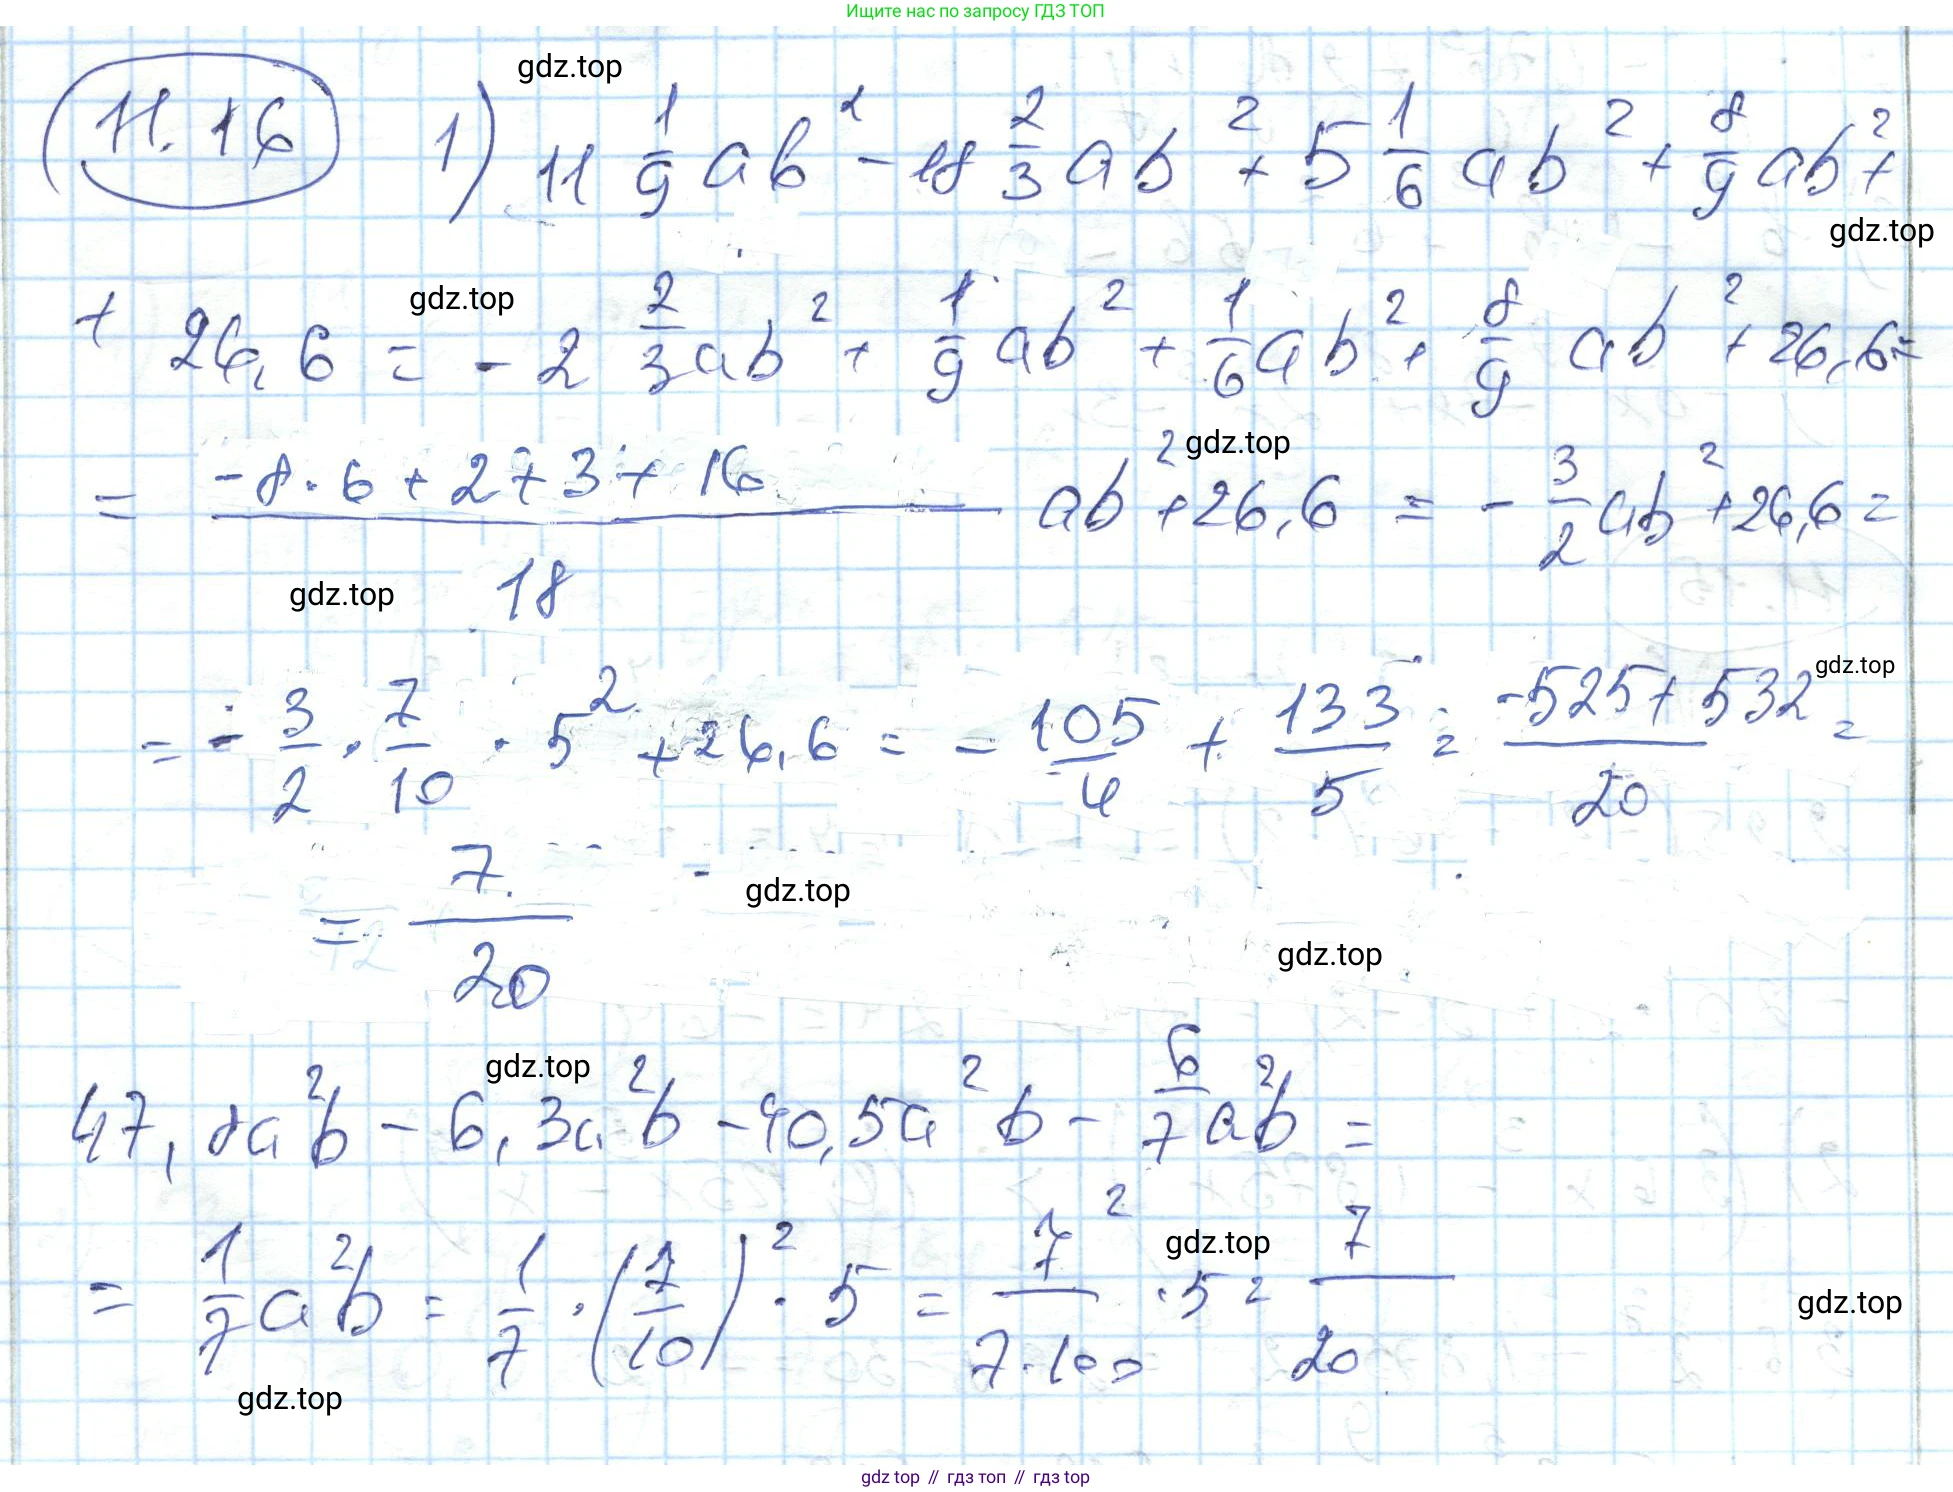 Ищите нас по запросу ГДЗ ТОП
gdz.top
11.16 1) 11 1/9 ab² - 18 2/3 ab² + 5 1/6 ab² + 8/9 ab² +
gdz.top
gdz.top
+ 26,6 = - 2 2/3 ab² + 1/9 ab² + 1/6 ab² + 8/9 ab² + 26,6 =
gdz.top
= (-8·6 + 2 + 3 + 16)/18 ab² + 26,6 = - 3/2 ab² + 26,6 =
gdz.top
gdz.top
= - 3/2 · 7/10 · 5² + 26,6 = - 105/4 + 133/5 = (-525 + 532)/20 =
gdz.top
= 7/20
gdz.top
gdz.top
47,8a²b - 6,3a²b - 40,5a²b - 6/7 a²b =
gdz.top
= 1/7 a²b = 1/7 · (7/10)² · 5 = 7²/(7·100) · 5 = 7/20
gdz.top
gdz.top
gdz top // гдз топ // гдз top